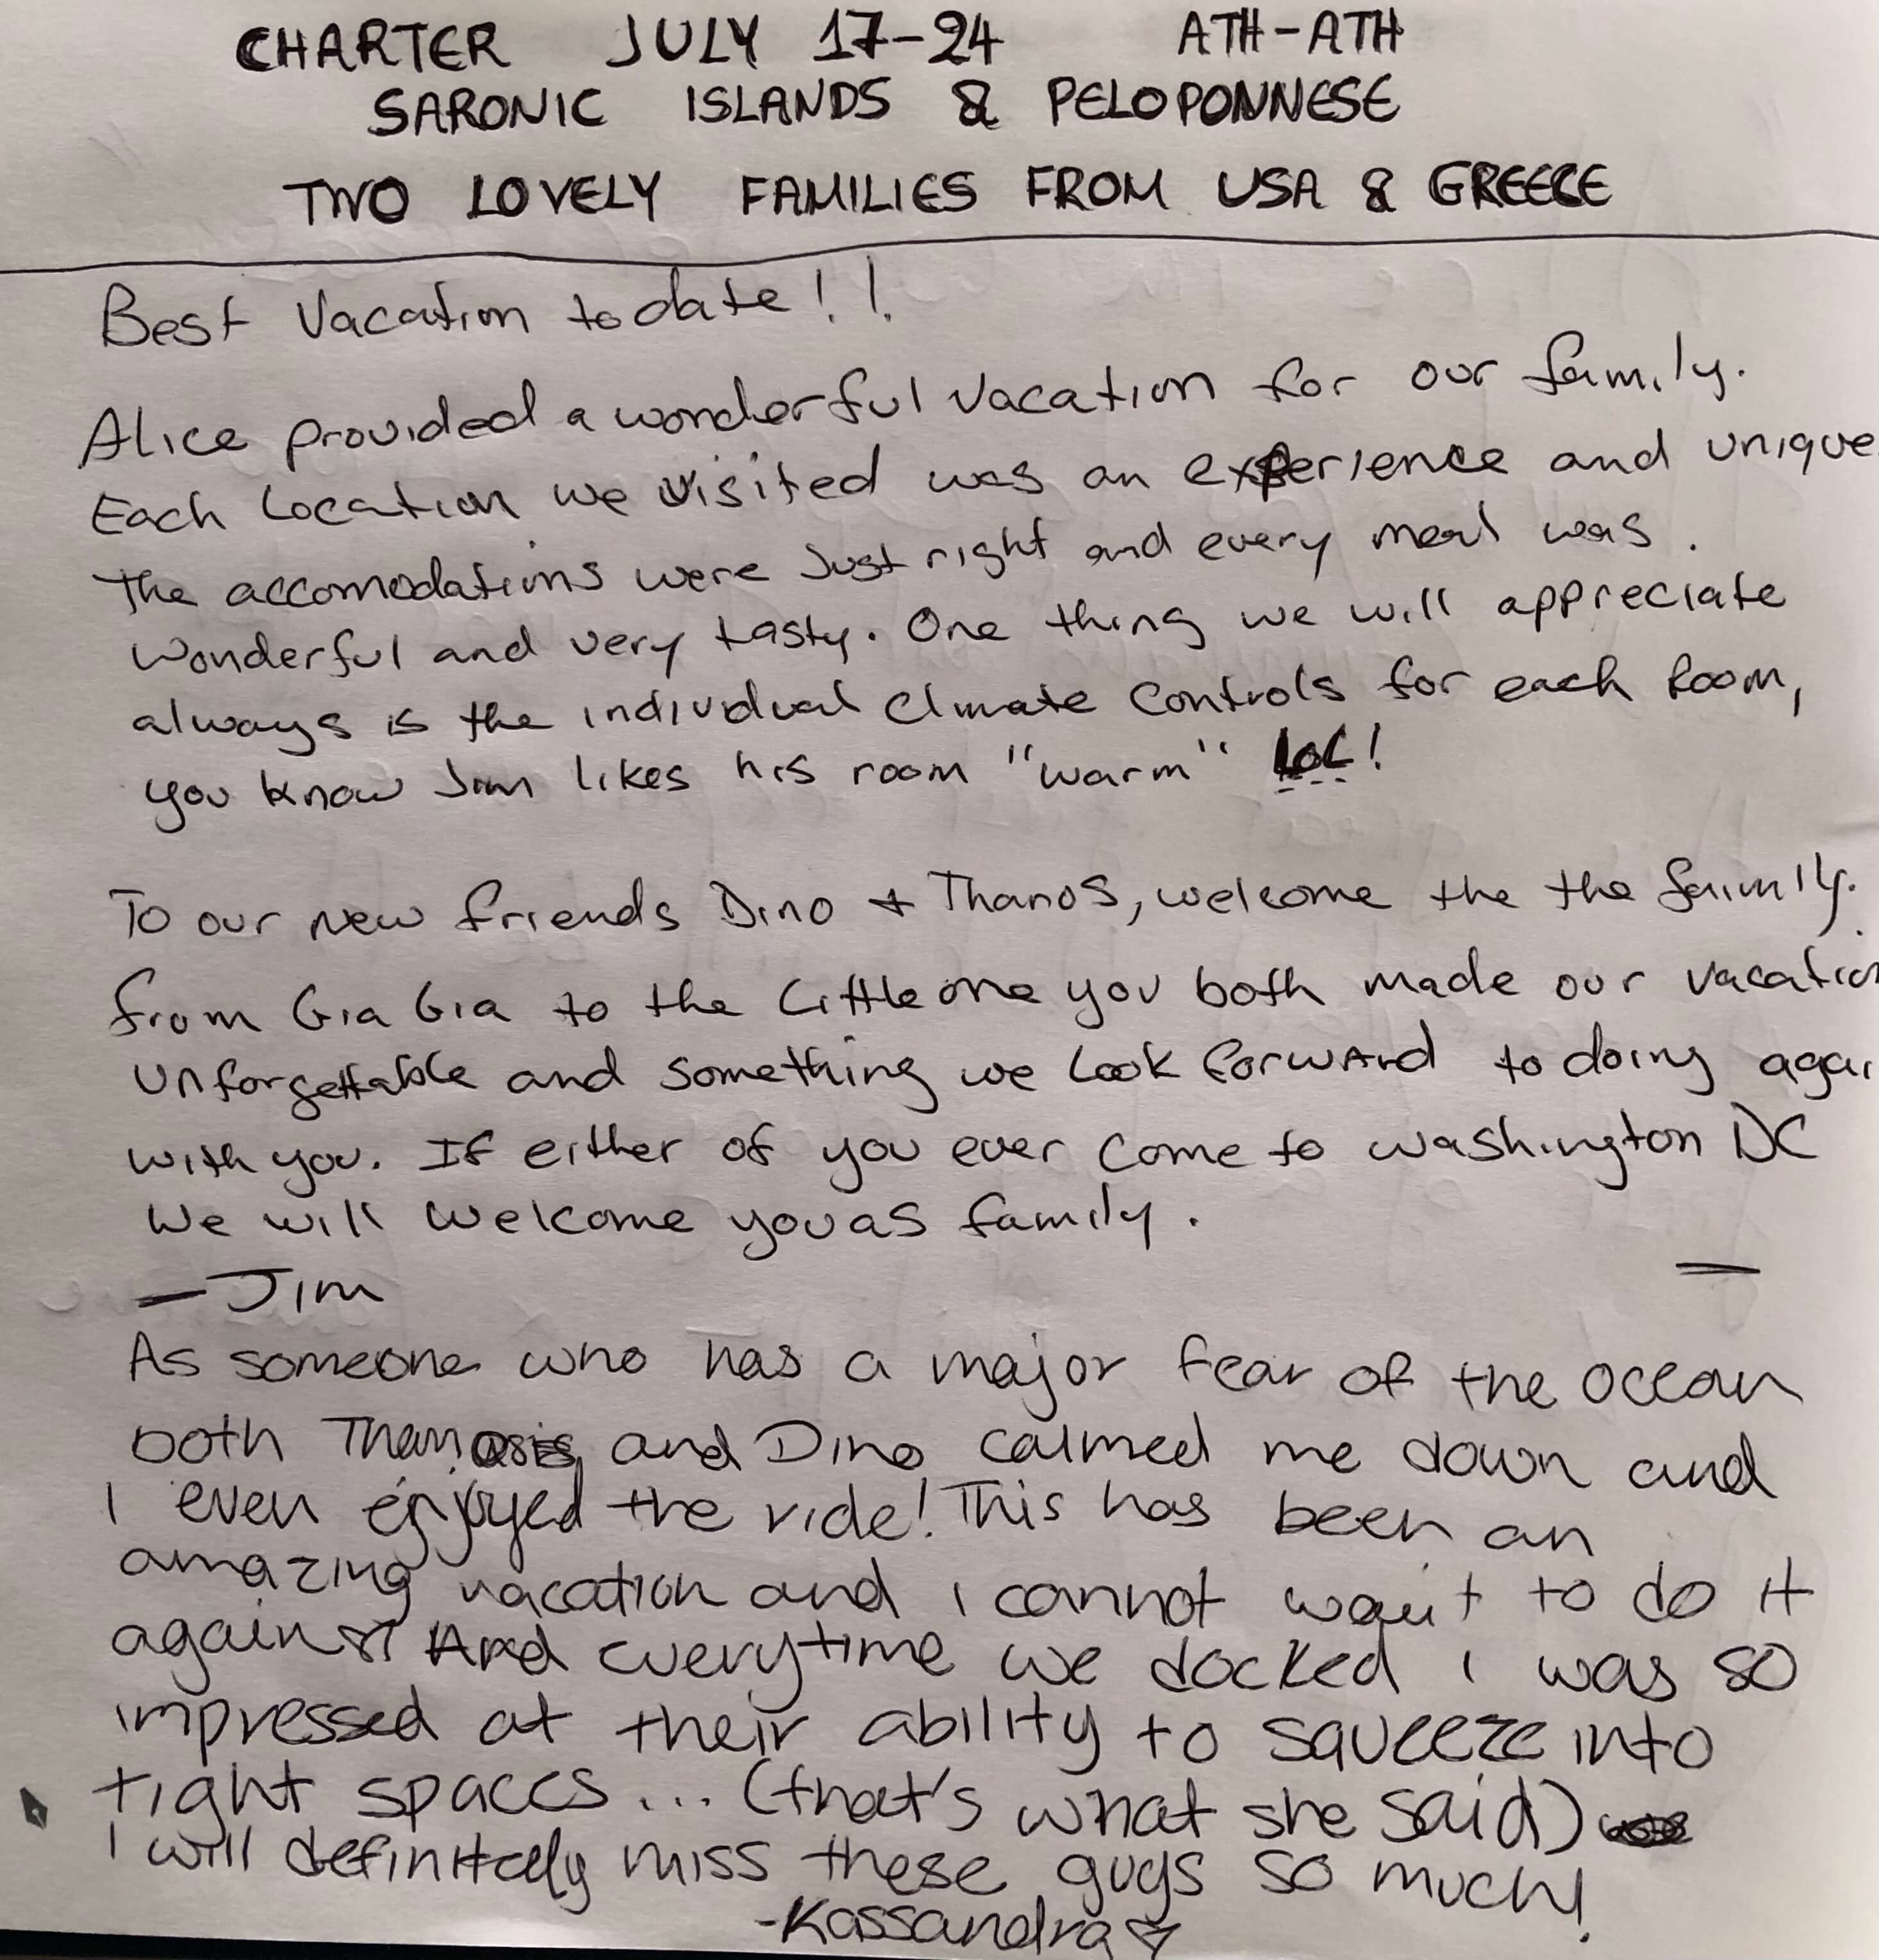 CHARTER JULY 17-24 ATH-ATH
SARONIC ISLANDS & PELOPONNESE
TWO LOVELY FAMILIES FROM USA & GREECE
Best Vacation to date!!
Alice provided a wonderful vacation for our family.
Each Location we visited was an experience and unique
The accomodations were Just right and every meal was.
wonderful and very tasty. One thing we will appreciate
always is the individual Climate Controls for each Room,
you know Jim likes his room "warm" LOL!
To our new friends Dino + Thanos, welcome the the family.
from Gia Gia to the Little one you both made our vacation
unforgettable and something we Look forward to doing agai
with you. If either of you ever come to Washington DC
We will welcome you as family.
—Jim —
As someone who has a major fear of the ocean
both Thanasis and Dino calmed me down and
I even enjoyed the ride! This has been an
amazing vacation and I cannot wait to do it
again And everytime we docked I was so
impressed at their ability to squeeze into
tight spaces... (that's what she said)
I will definitely miss these guys so much!
-Kassandra ♡